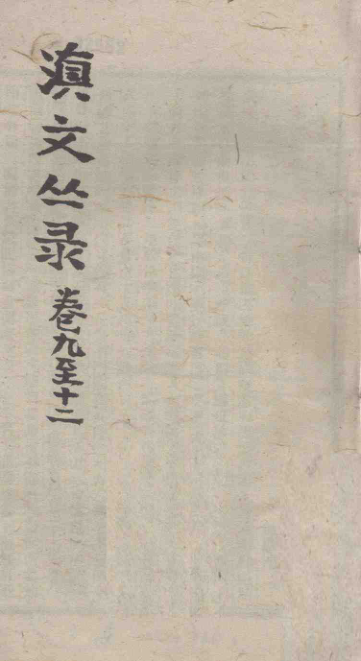 滇文丛录 卷九至十二